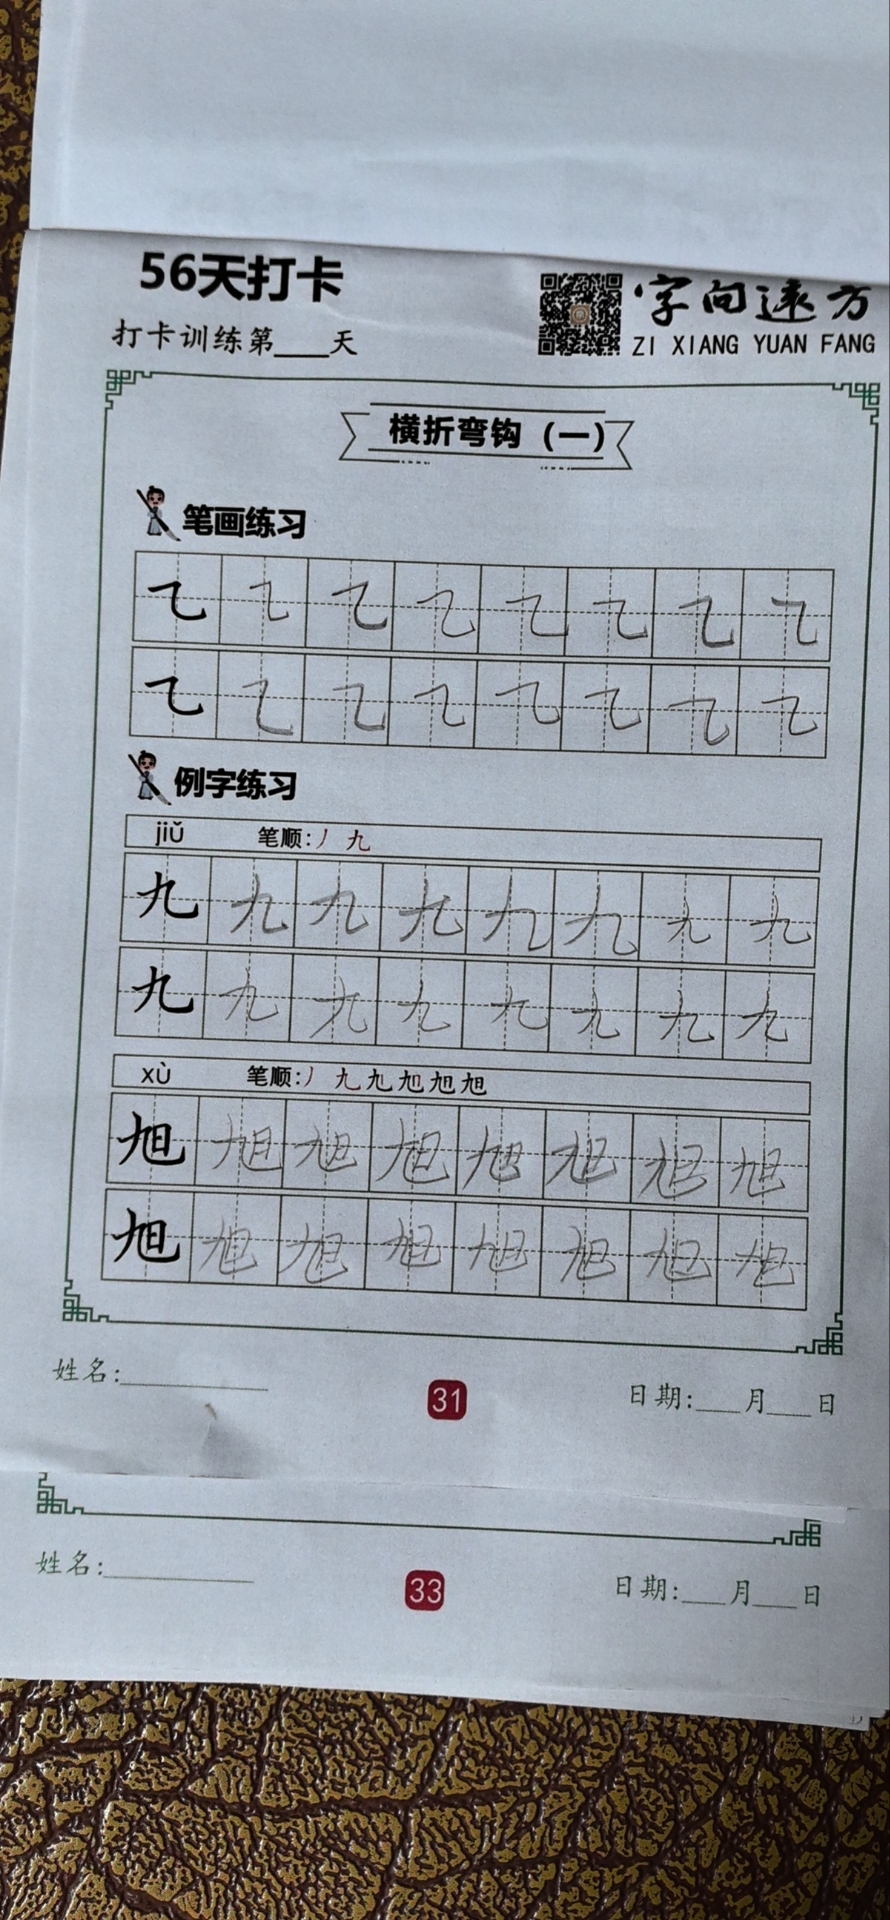 56天打卡
字向远方
打卡训练第___天
ZI XIANG YUAN FANG
横折弯钩（一）
笔画练习
㇈ ㇈ ㇈ ㇈ ㇈ ㇈ ㇈ ㇈
㇈ ㇈ ㇈ ㇈ ㇈ ㇈ ㇈ ㇈
例字练习
jiǔ 笔顺:丿 九
九 九 九 九 九 九 九 九
九 九 九 九 九 九 九 九
xù 笔顺:丿 九 九 旭 旭 旭
旭 旭 旭 旭 旭 旭 旭 旭
旭 旭 旭 旭 旭 旭 旭 旭
姓名:__________ 31 日期:___月___日
姓名:__________ 33 日期:___月___日